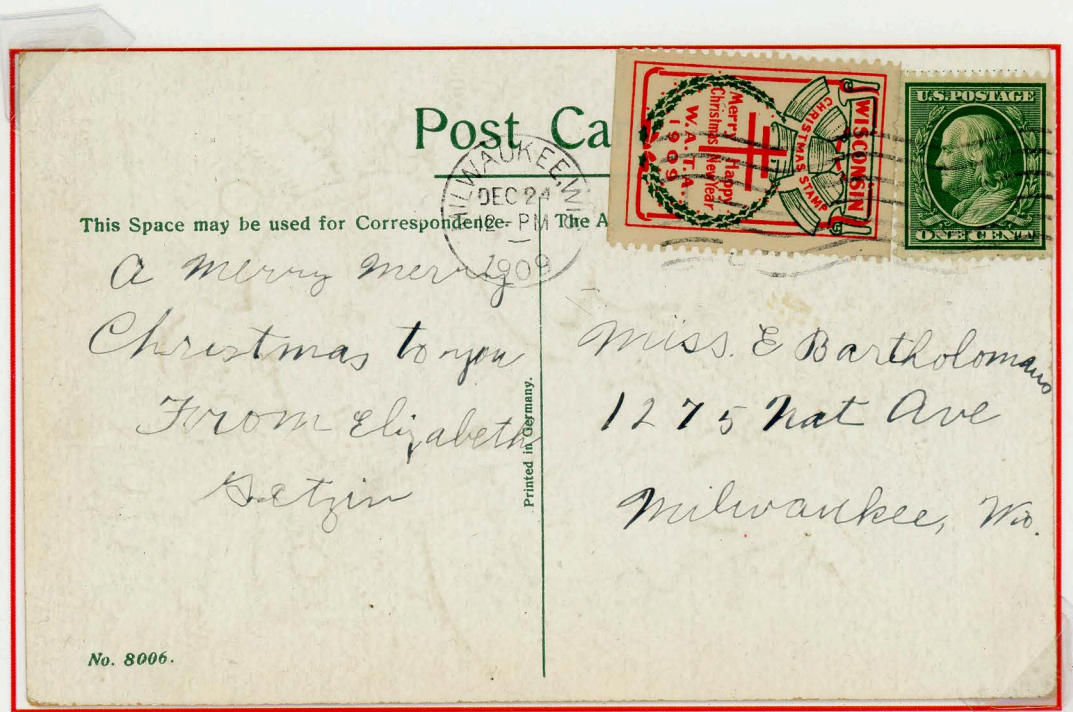 Post Ca
MILWAUKEE, WI
DEC 24
12 - PM
1909
WISCONSIN
CHRISTMAS STAMP
Merry Happy
Christmas New Year
W.A.T.A.
1909
U.S. POSTAGE
ONE CENT
This Space may be used for Correspondence.
The A
A Merry Merry
Christmas to you
From Elizabeth
Getzin
Miss. E Bartholomaus
1275 Nat Ave
Milwaukee, Wis.
Printed in Germany.
No. 8006.